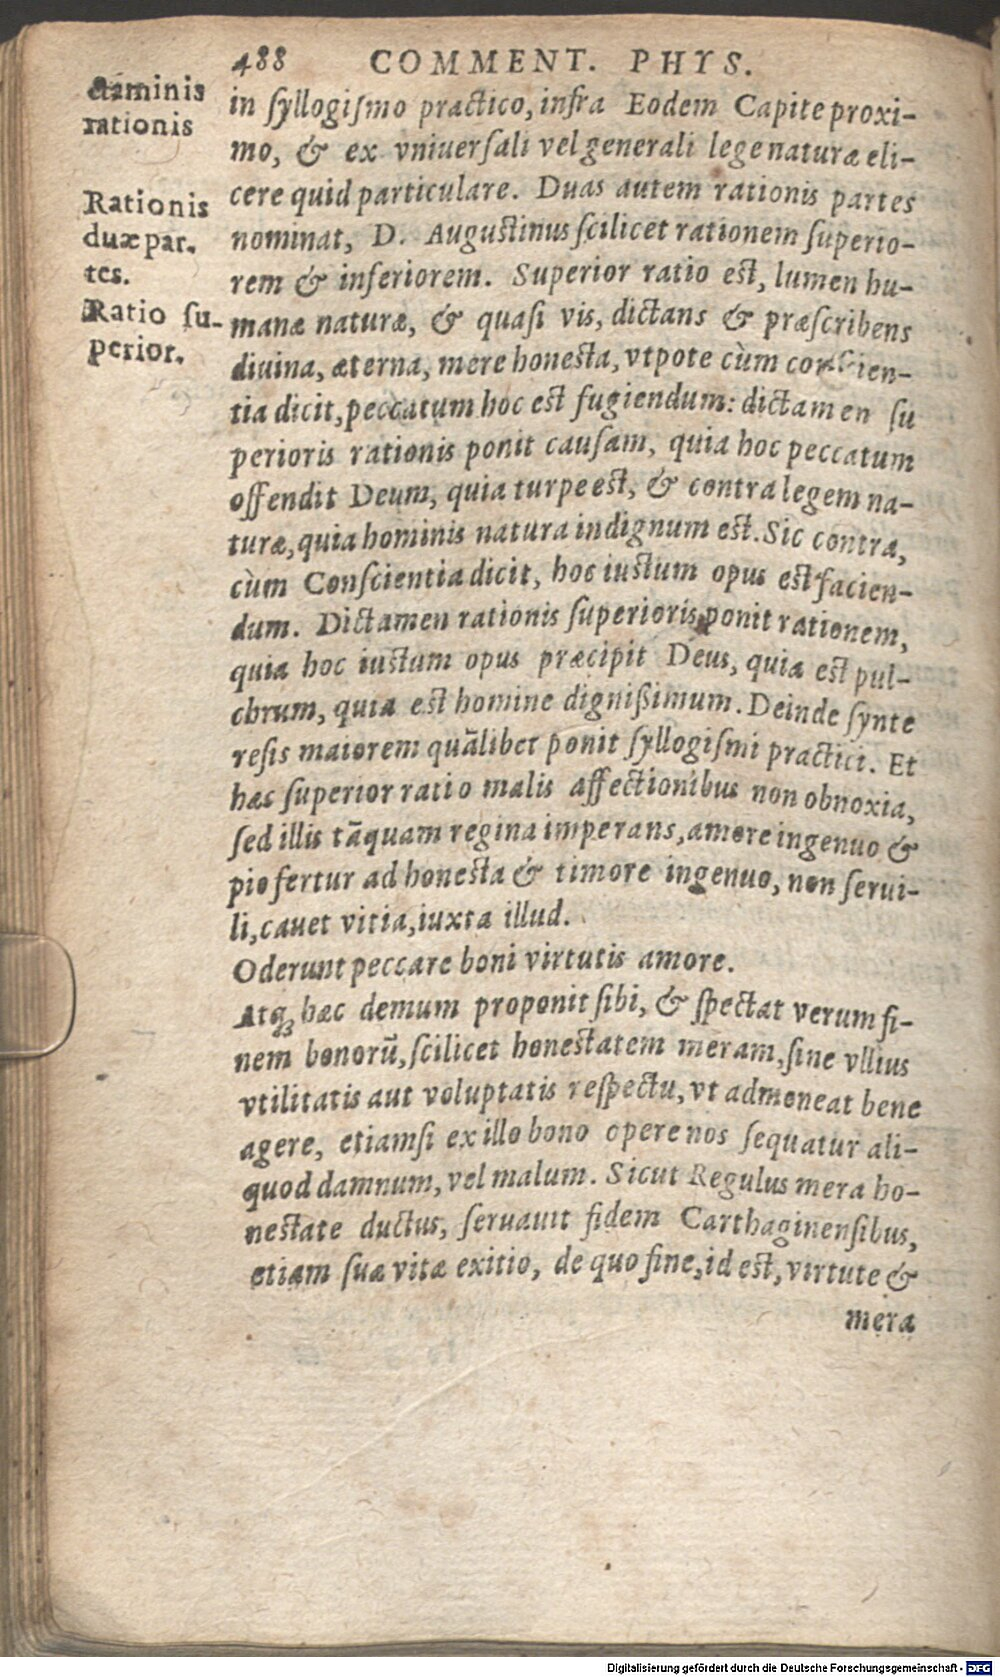 488 COMMENT. PHYS.
ctaminis
rationis
in syllogismo practico, infra Eodem Capite proxi-
mo, & ex vniuersali vel generali lege naturæ eli-
cere quid particulare. Duas autem rationis partes
Rationis
duæ par.
tes.
nominat, D. Augustinus scilicet rationem superio-
rem & inferiorem. Superior ratio est, lumen hu-
Ratio su-
perior.
manæ naturæ, & quasi vis, dictans & præscribens
diuina, æterna, mere honesta, vtpote cùm conscien-
tia dicit, peccatum hoc est fugiendum: dictamen su
perioris rationis ponit causam, quia hoc peccatum
offendit Deum, quia turpe est, & contra legem na-
turæ, quia hominis natura indignum est. Sic contra,
cùm Conscientia dicit, hoc iustum opus est facien-
dum. Dictamen rationis superioris ponit rationem,
quia hoc iustum opus præcipit Deus, quia est pul-
chrum, quia est homine dignißimum. Deinde synte
resis maiorem quālibet ponit syllogismi practici. Et
hæc superior ratio malis affectionibus non obnoxia,
sed illis tāquam regina imperans, amore ingenuo &
pio fertur ad honesta & timore ingenuo, non serui-
li, cauet vitia, iuxta illud.
Oderunt peccare boni virtutis amore.
Atq; hæc demum proponit sibi, & spectat verum fi-
nem bonorū, scilicet honestatem meram, sine vllius
vtilitatis aut voluptatis respectu, vt admoneat bene
agere, etiamsi ex illo bono opere nos sequatur ali-
quod damnum, vel malum. Sicut Regulus mera ho-
nestate ductus, seruauit fidem Carthaginensibus,
etiam suæ vitæ exitio, de quo fine, id est, virtute &
mera
Digitalisierung gefördert durch die Deutsche Forschungsgemeinschaft - DFG